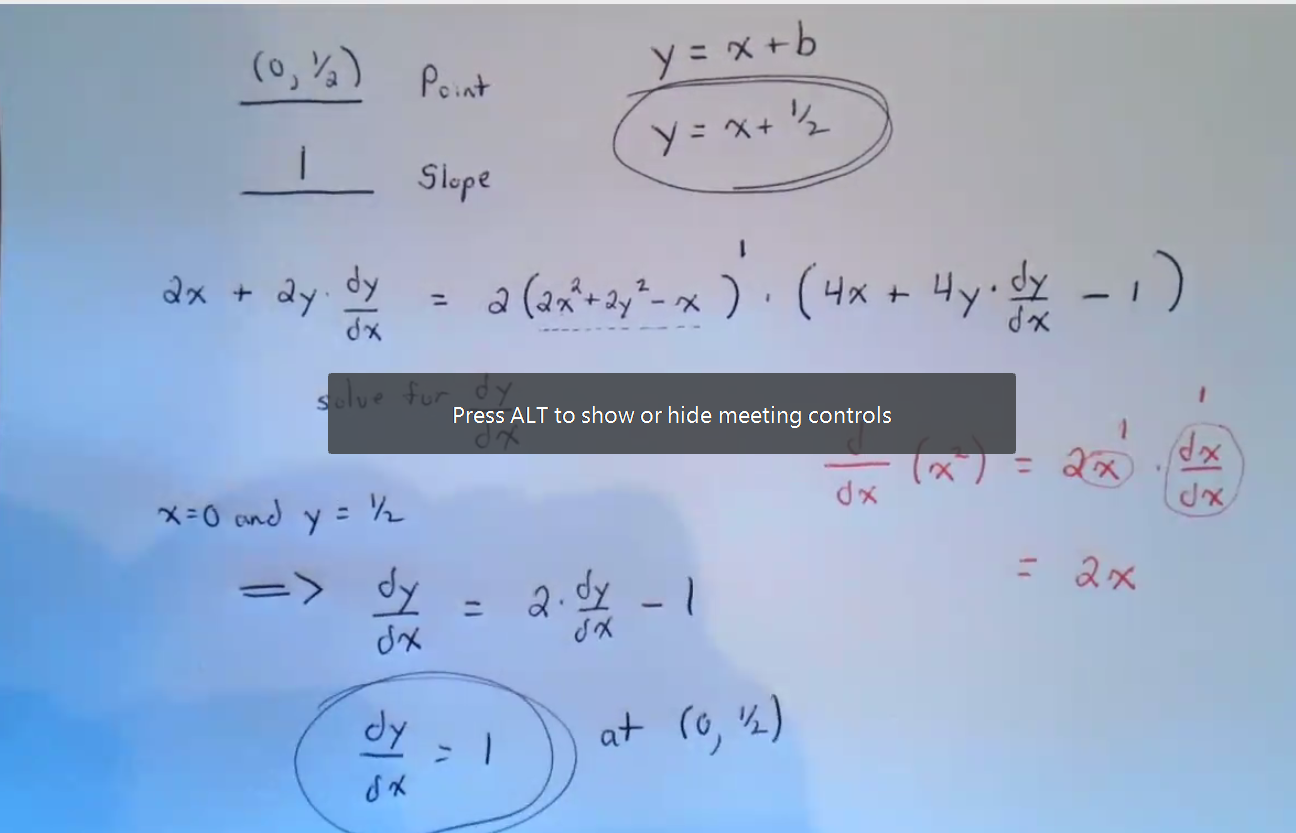 (0, 1/2) Point
y = x + b
y = x + 1/2
1 Slope
2x + 2y · dy/dx = 2(2x² + 2y² - x)¹ · (4x + 4y · dy/dx - 1)
solve for dy/dx
Press ALT to show or hide meeting controls
d/dx (x²) = 2x¹ · dx/dx 1
= 2x
x=0 and y = 1/2
=> dy/dx = 2 · dy/dx - 1
dy/dx = 1 at (0, 1/2)